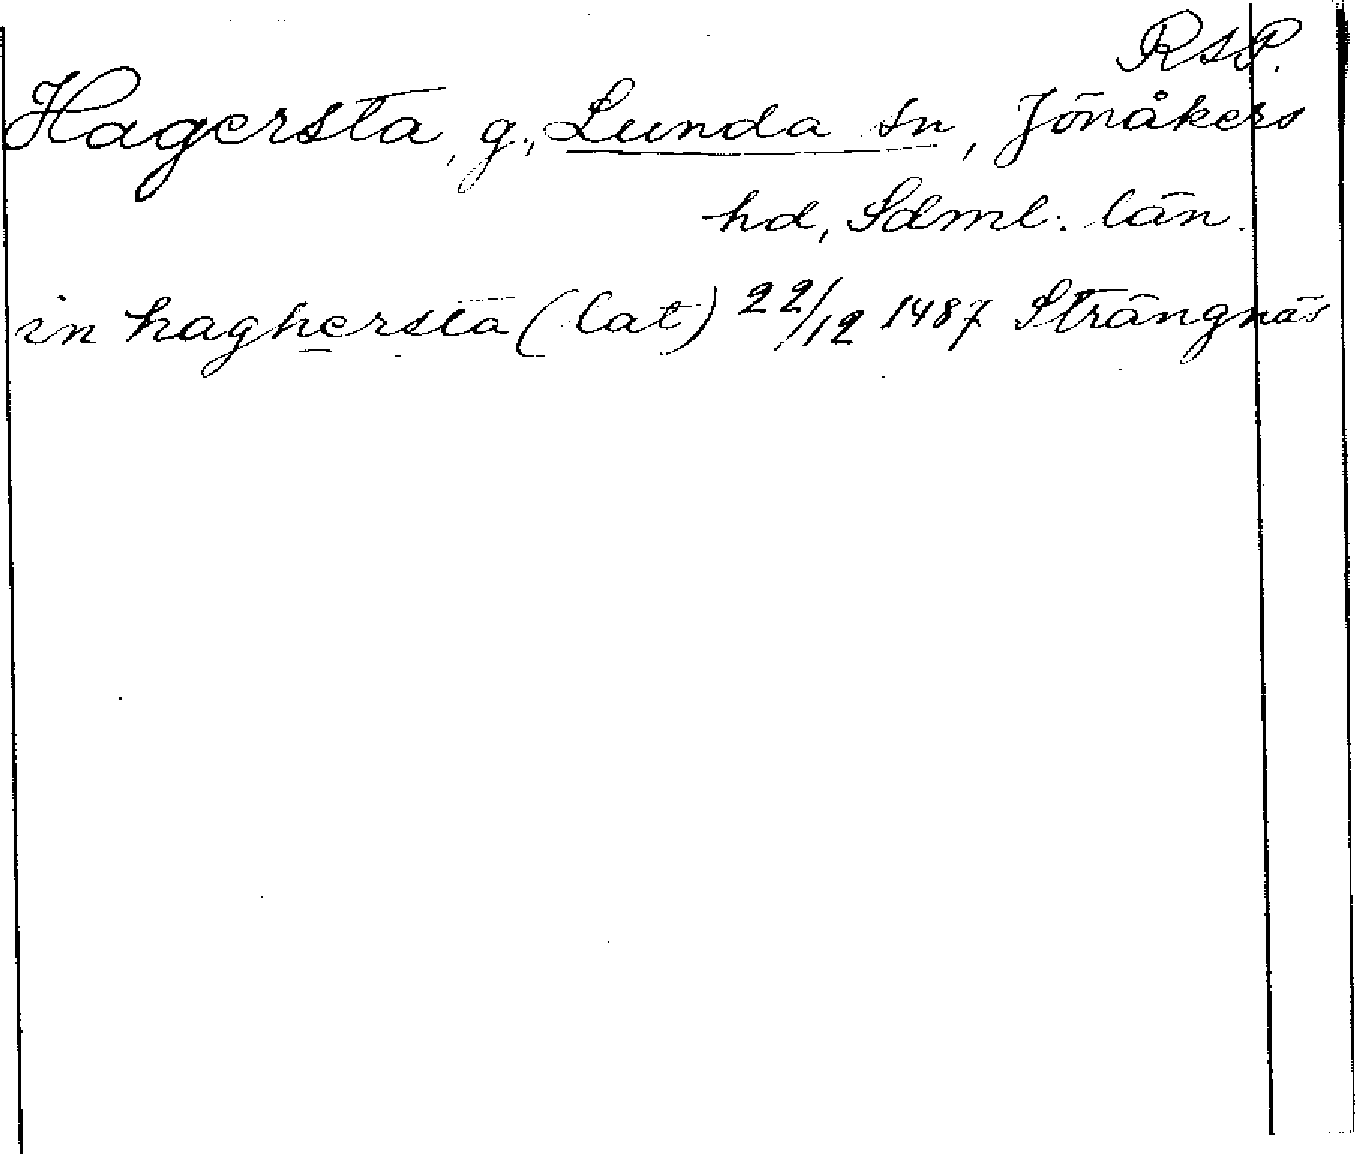 RAP.
Hagersta, g., Lunda sn, Jönåkers
hd, Sdml. län.
in haghersta (lat) 22/12 1487 Strängnäs